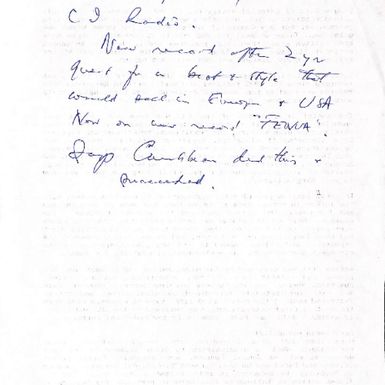 C I Radio.
New record after 2 yr
quest for a beat & style that
would sell in Europe & USA
Now on new record "FENUA".
Says Caribbean did this &
succeeded.